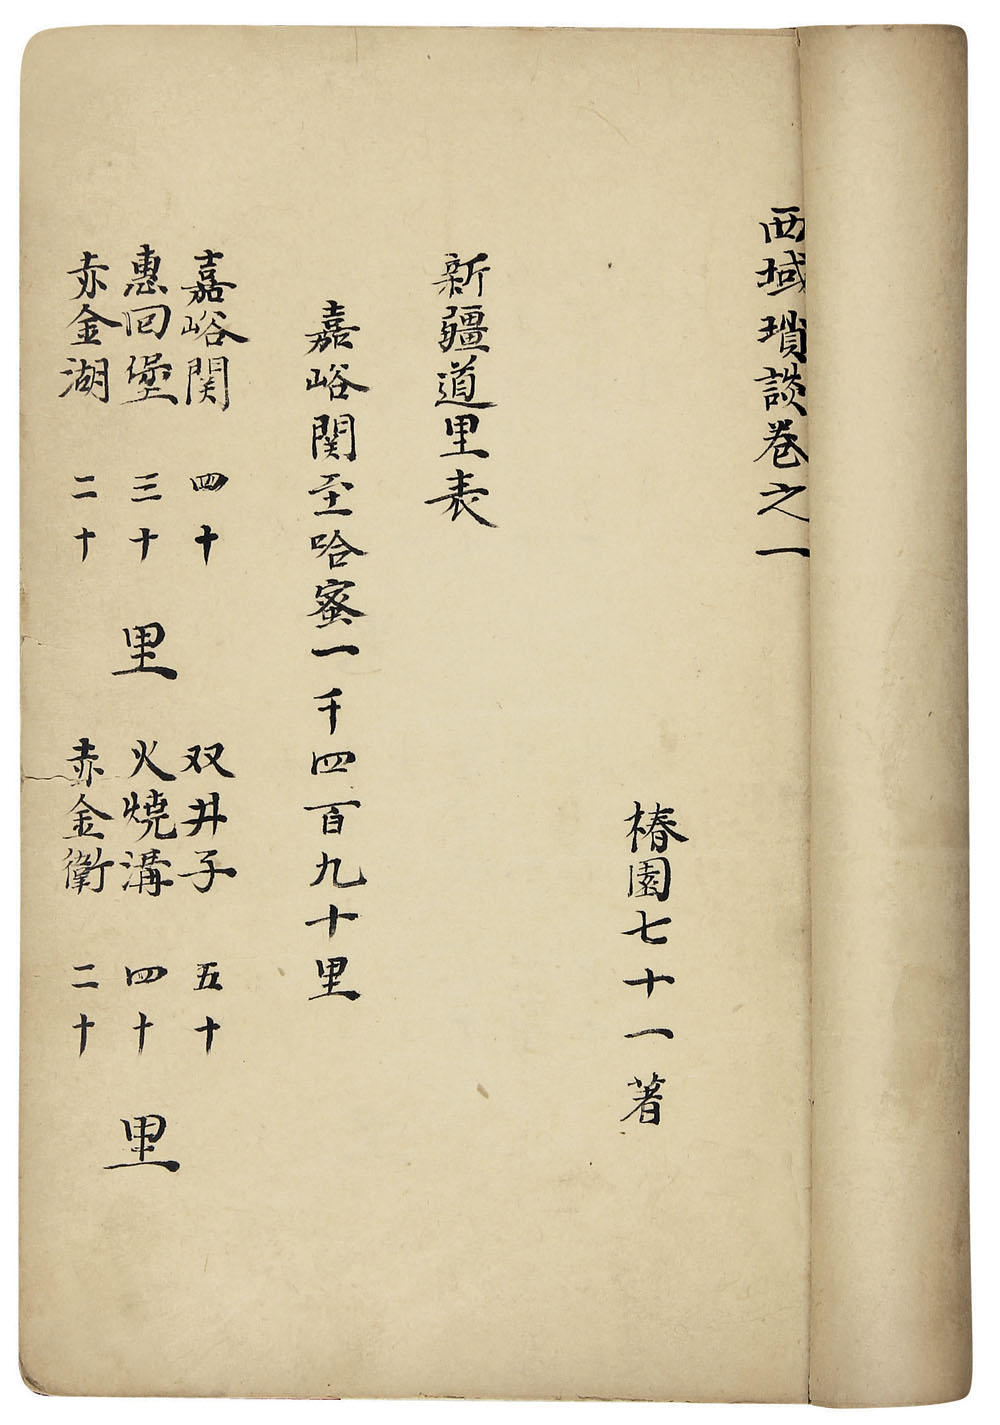 西域瑣談卷之一
椿園七十一著
新疆道里表
嘉峪関至哈蜜一千四百九十里
嘉峪関 四十
惠回堡 三十 里
赤金湖 二十
双井子 五十
火燒溝 四十 里
赤金衛 二十